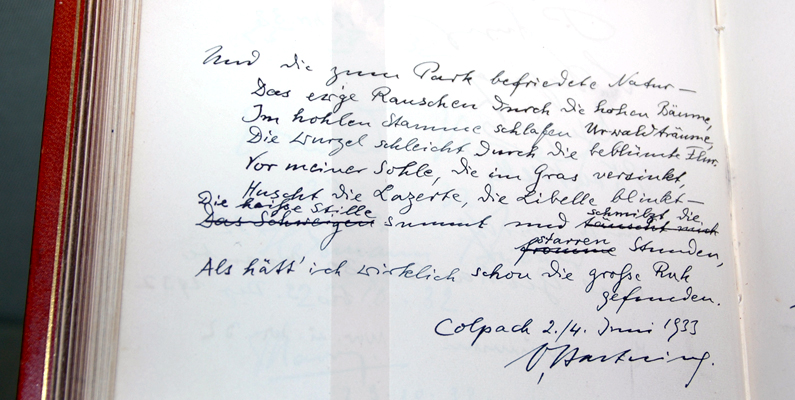 Und die zum Park befriedete Natur —
Das ewige Rauschen durch die hohen Bäume,
Im hohlen Stamme schlafen Urwaldträume,
Die Wurzel schleicht durch die beblümte Flur.
Vor meiner Sohle, die im Gras versinkt,
Huscht die Lazerte, die Libelle blinkt —
Die heiße Stille schmilzt die
Das Schweigen summt und täuscht mich
starren
fromme Stunden,
Als hätt' ich wirklich schon die große Ruh
gefunden.
Colpach 2./4. Juni 1933